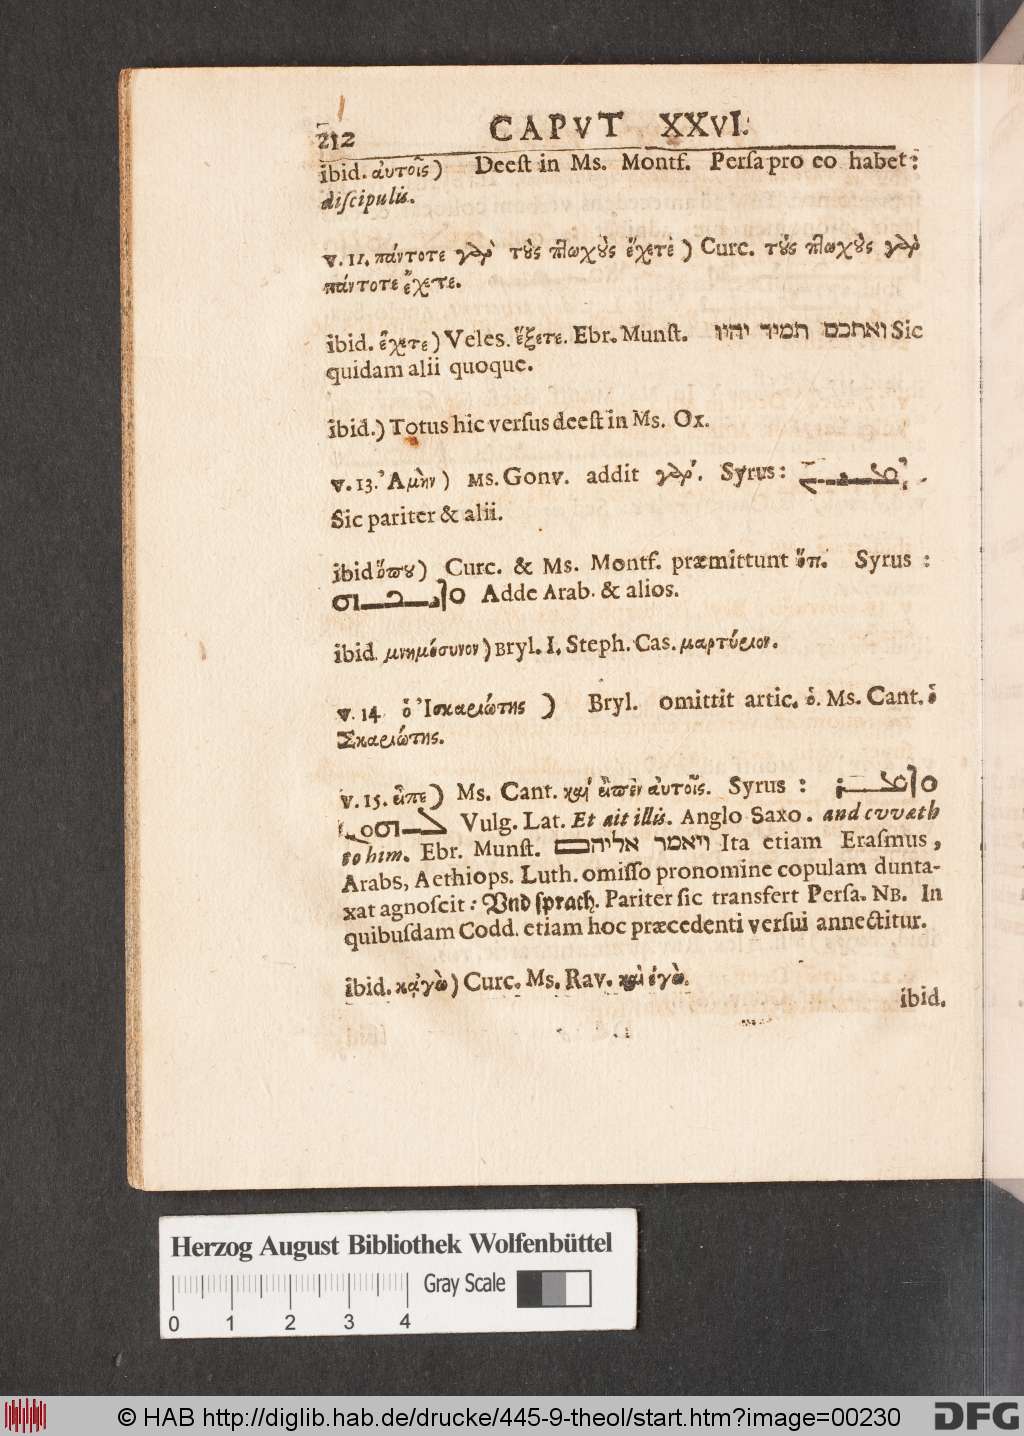 212 CAPVT XXVI.
ibid. αὐτοῖς) Deest in Ms. Montf. Persa pro eo habet:
discipulis.
v. 11. πάντοτε γὰρ τοὺς πτωχοὺς ἔχετε) Curc. τοὺς πτωχοὺς γὰρ
πάντοτε ἔχετε.
ibid. ἔχετε) Veles. ἕξετε. Ebr. Munst. ואתכם תמיד יהיו Sic
quidam alii quoque.
ibid.) Totus hic versus deest in Ms. Ox.
v. 13. Ἀμὴν) Ms. Gonv. addit γάρ. Syrus:
Sic pariter & alii.
ibid ὅπου) Curc. & Ms. Montf. præmittunt ὅτι. Syrus:
Adde Arab. & alios.
ibid. μνημόσυνον) Bryl. I. Steph. Cas. μαρτύριον.
v. 14 ὁ Ἰσκαριώτης) Bryl. omittit artic. ὁ. Ms. Cant. ὁ
Σκαριώτης.
v. 15. εἶπε) Ms. Cant. καὶ εἶπεν αὐτοῖς. Syrus:
Vulg. Lat. Et ait illis. Anglo Saxo. and cvvæth
to him. Ebr. Munst. ויאמר אליהם Ita etiam Erasmus,
Arabs, Aethiops. Luth. omisso pronomine copulam dunta-
xat agnoscit: Vnd sprach. Pariter sic transfert Persa. NB. In
quibusdam Codd. etiam hoc præcedenti versui annectitur.
ibid. κἀγὼ) Curc. Ms. Rav. καὶ ἐγὼ.
ibid.
Herzog August Bibliothek Wolfenbüttel
Gray Scale
0 1 2 3 4
© HAB http://diglib.hab.de/drucke/445-9-theol/start.htm?image=00230 DFG